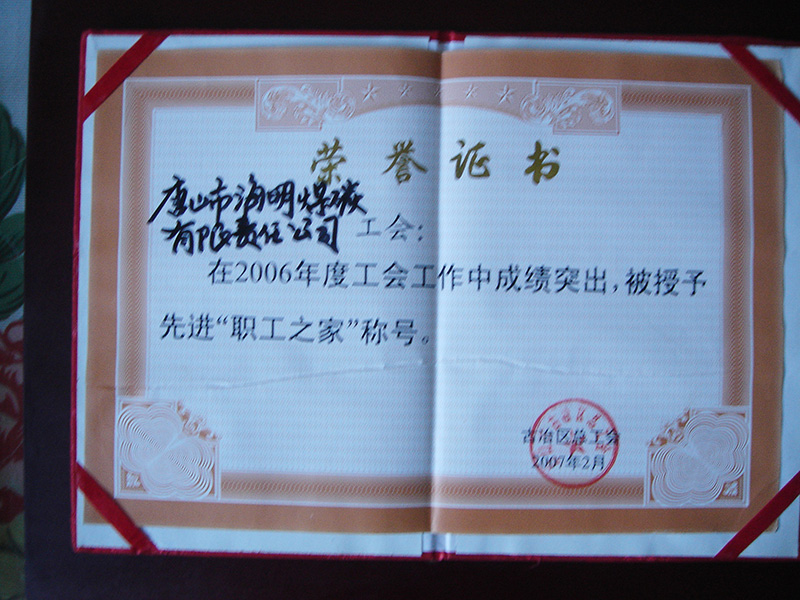 荣誉证书
唐山市海明煤碳
有限责任公司 工会：
在2006年度工会工作中成绩突出，被授予
先进“职工之家”称号。
古冶区总工会
2007年2月